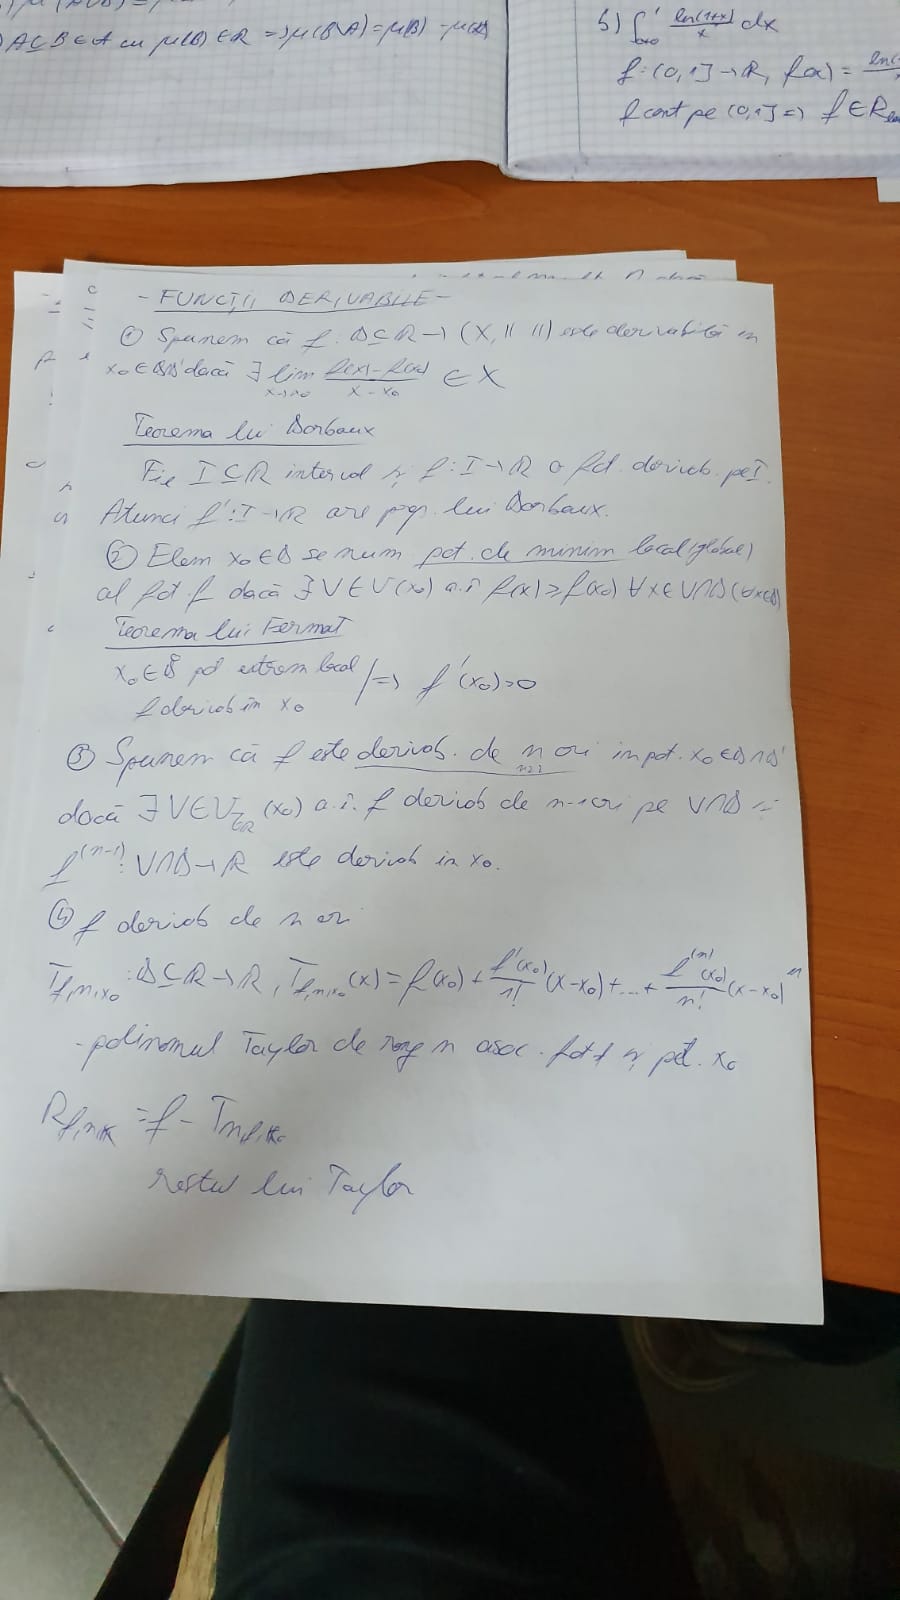 A⊆B∈A cu μ(B)∈R => μ(B\A)=μ(B)-μ(A)
b) ∫ ln(1+x)/x dx
f:(0,1]→R, f(x)= ln(
f cont pe (0,1] => f∈R
- FUNCȚII DERIVABILE -
① Spunem că f: D⊆R→(X,|| ||) este derivabilă în
x₀∈D∩D' dacă ∃ lim x→x₀ f(x)-f(x₀)/x-x₀ ∈ X
Teorema lui Darboux
Fie I⊆R interval și f:I→R o fct. derivab. pe I.
Atunci f':I→R are prop. lui Darboux.
② Elem x₀∈D se num pct. de minim local (global)
al fct f dacă ∃V∈V(x₀) a.î f(x)≥f(x₀) ∀x∈V∩D (∀x∈D)
Teorema lui Fermat
x₀∈D̊ pct extrem local
f derivab în x₀ /=> f'(x₀)=0
③ Spunem că f este derivab. de n ori în pct. x₀∈D∩D'
n≥2
dacă ∃V∈V_{τ_R}(x₀) a.î. f derivab de n-1 ori pe V∩D și
f^(n-1): V∩D→R este derivab în x₀.
④ f derivab de n ori
T_{f,n,x₀}: D⊆R→R, T_{f,n,x₀}(x)=f(x₀)+f'(x₀)/1!(x-x₀)+...+f^(n)(x₀)/n!(x-x₀)^n
- polinomul Taylor de rang n asoc. fct f și pct. x₀
R_{f,n,x₀}=f-T_{n,f,x₀}
restul lui Taylor